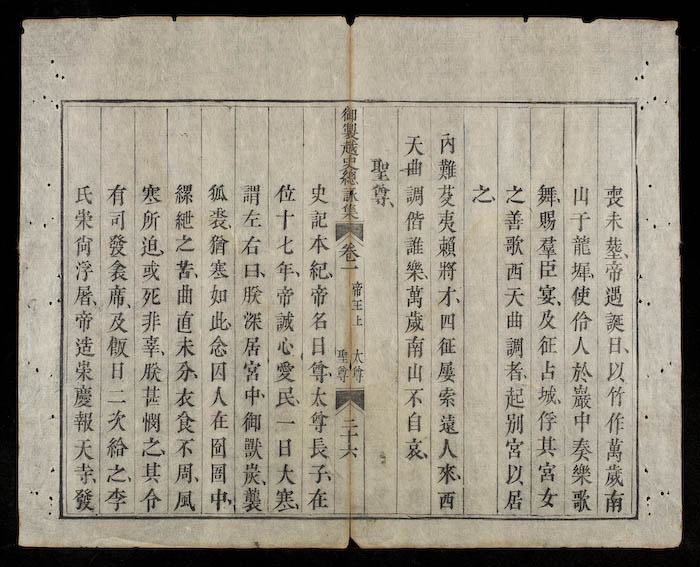 喪未塟、帝遇誕日、以竹作萬歲南
山于龍墀、使伶人於巖中奏樂歌
舞、賜羣臣宴、及征占城、俘其宮女
之善歌西天曲調者、起別宮以居
之、
內難芟夷賴將才、四征屢索遠人來、西
天曲調偕誰樂、萬歲南山不自哀、
聖尊、
御製越史總詠集 卷一 帝王上 太尊 聖尊 二十六
史記本紀、帝名日尊、太尊長子、在
位十七年、帝誠心愛民、一日大寒、
謂左右曰、朕深居宮中、御獸炭、襲
狐裘、猶寒如此、念囚人在囹圄中、
縲紲之苦、曲直未分、衣食不周、風
寒所迫、或死非辜、朕甚憫之、其令
有司發衾席、及飯日二次給之、李
氏崇尚浮屠、帝造崇慶報天寺、發